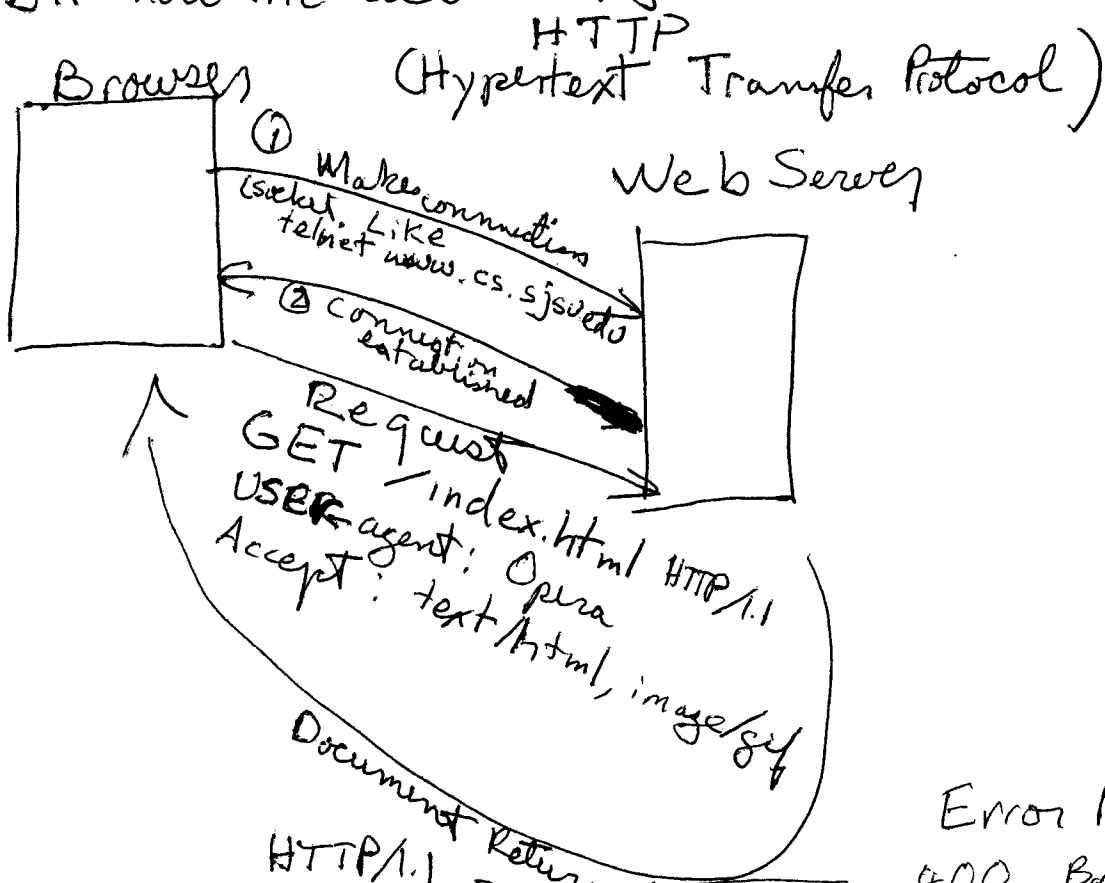 how the web
HTTP
(Hypertext Transfer Protocol)
Browser
①
Makes connection
(socket. Like
telnet www.cs.sjsu.edu
Web Server
② connection
established
Request
GET /index.html HTTP/1.1
USER-agent: Opera
Accept: text/html, image/gif
Document Retur
HTTP/1.1
Error
400 Ba